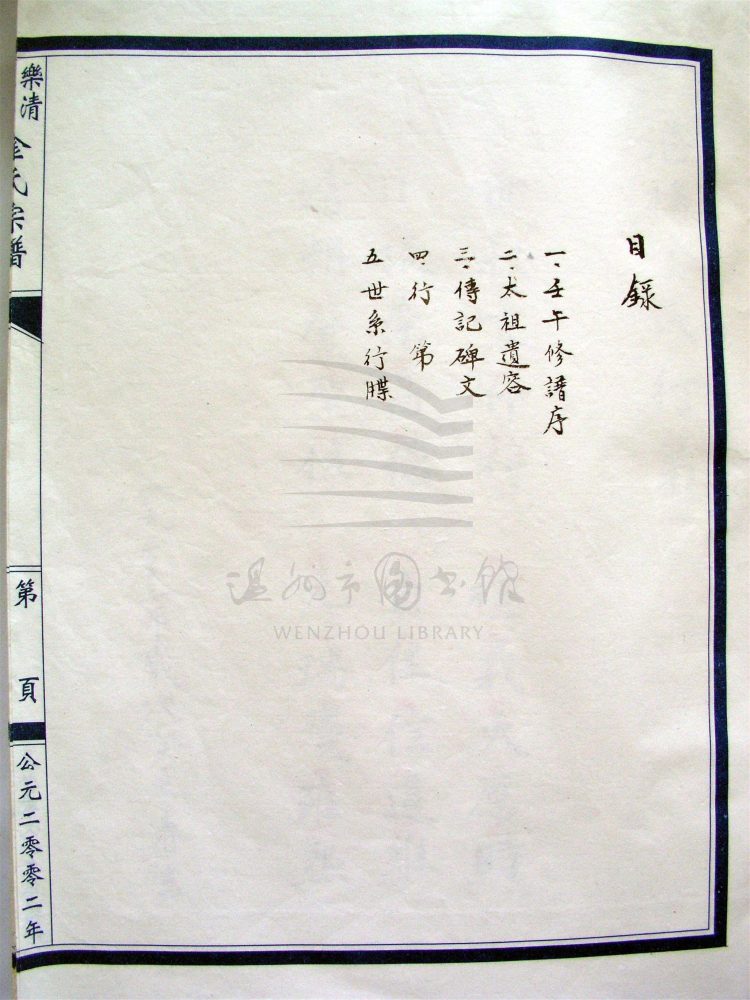 目錄
一、壬午修譜序
二、太祖遺容
三、傳記碑文
四、行第
五世系行牒
樂清金氏宗譜
第 頁
公元二零零二年
温州市图书馆
WENZHOU LIBRARY